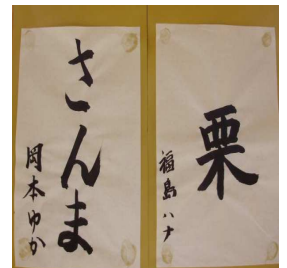 栗
福島ハナ
さんま
岡本ゆか